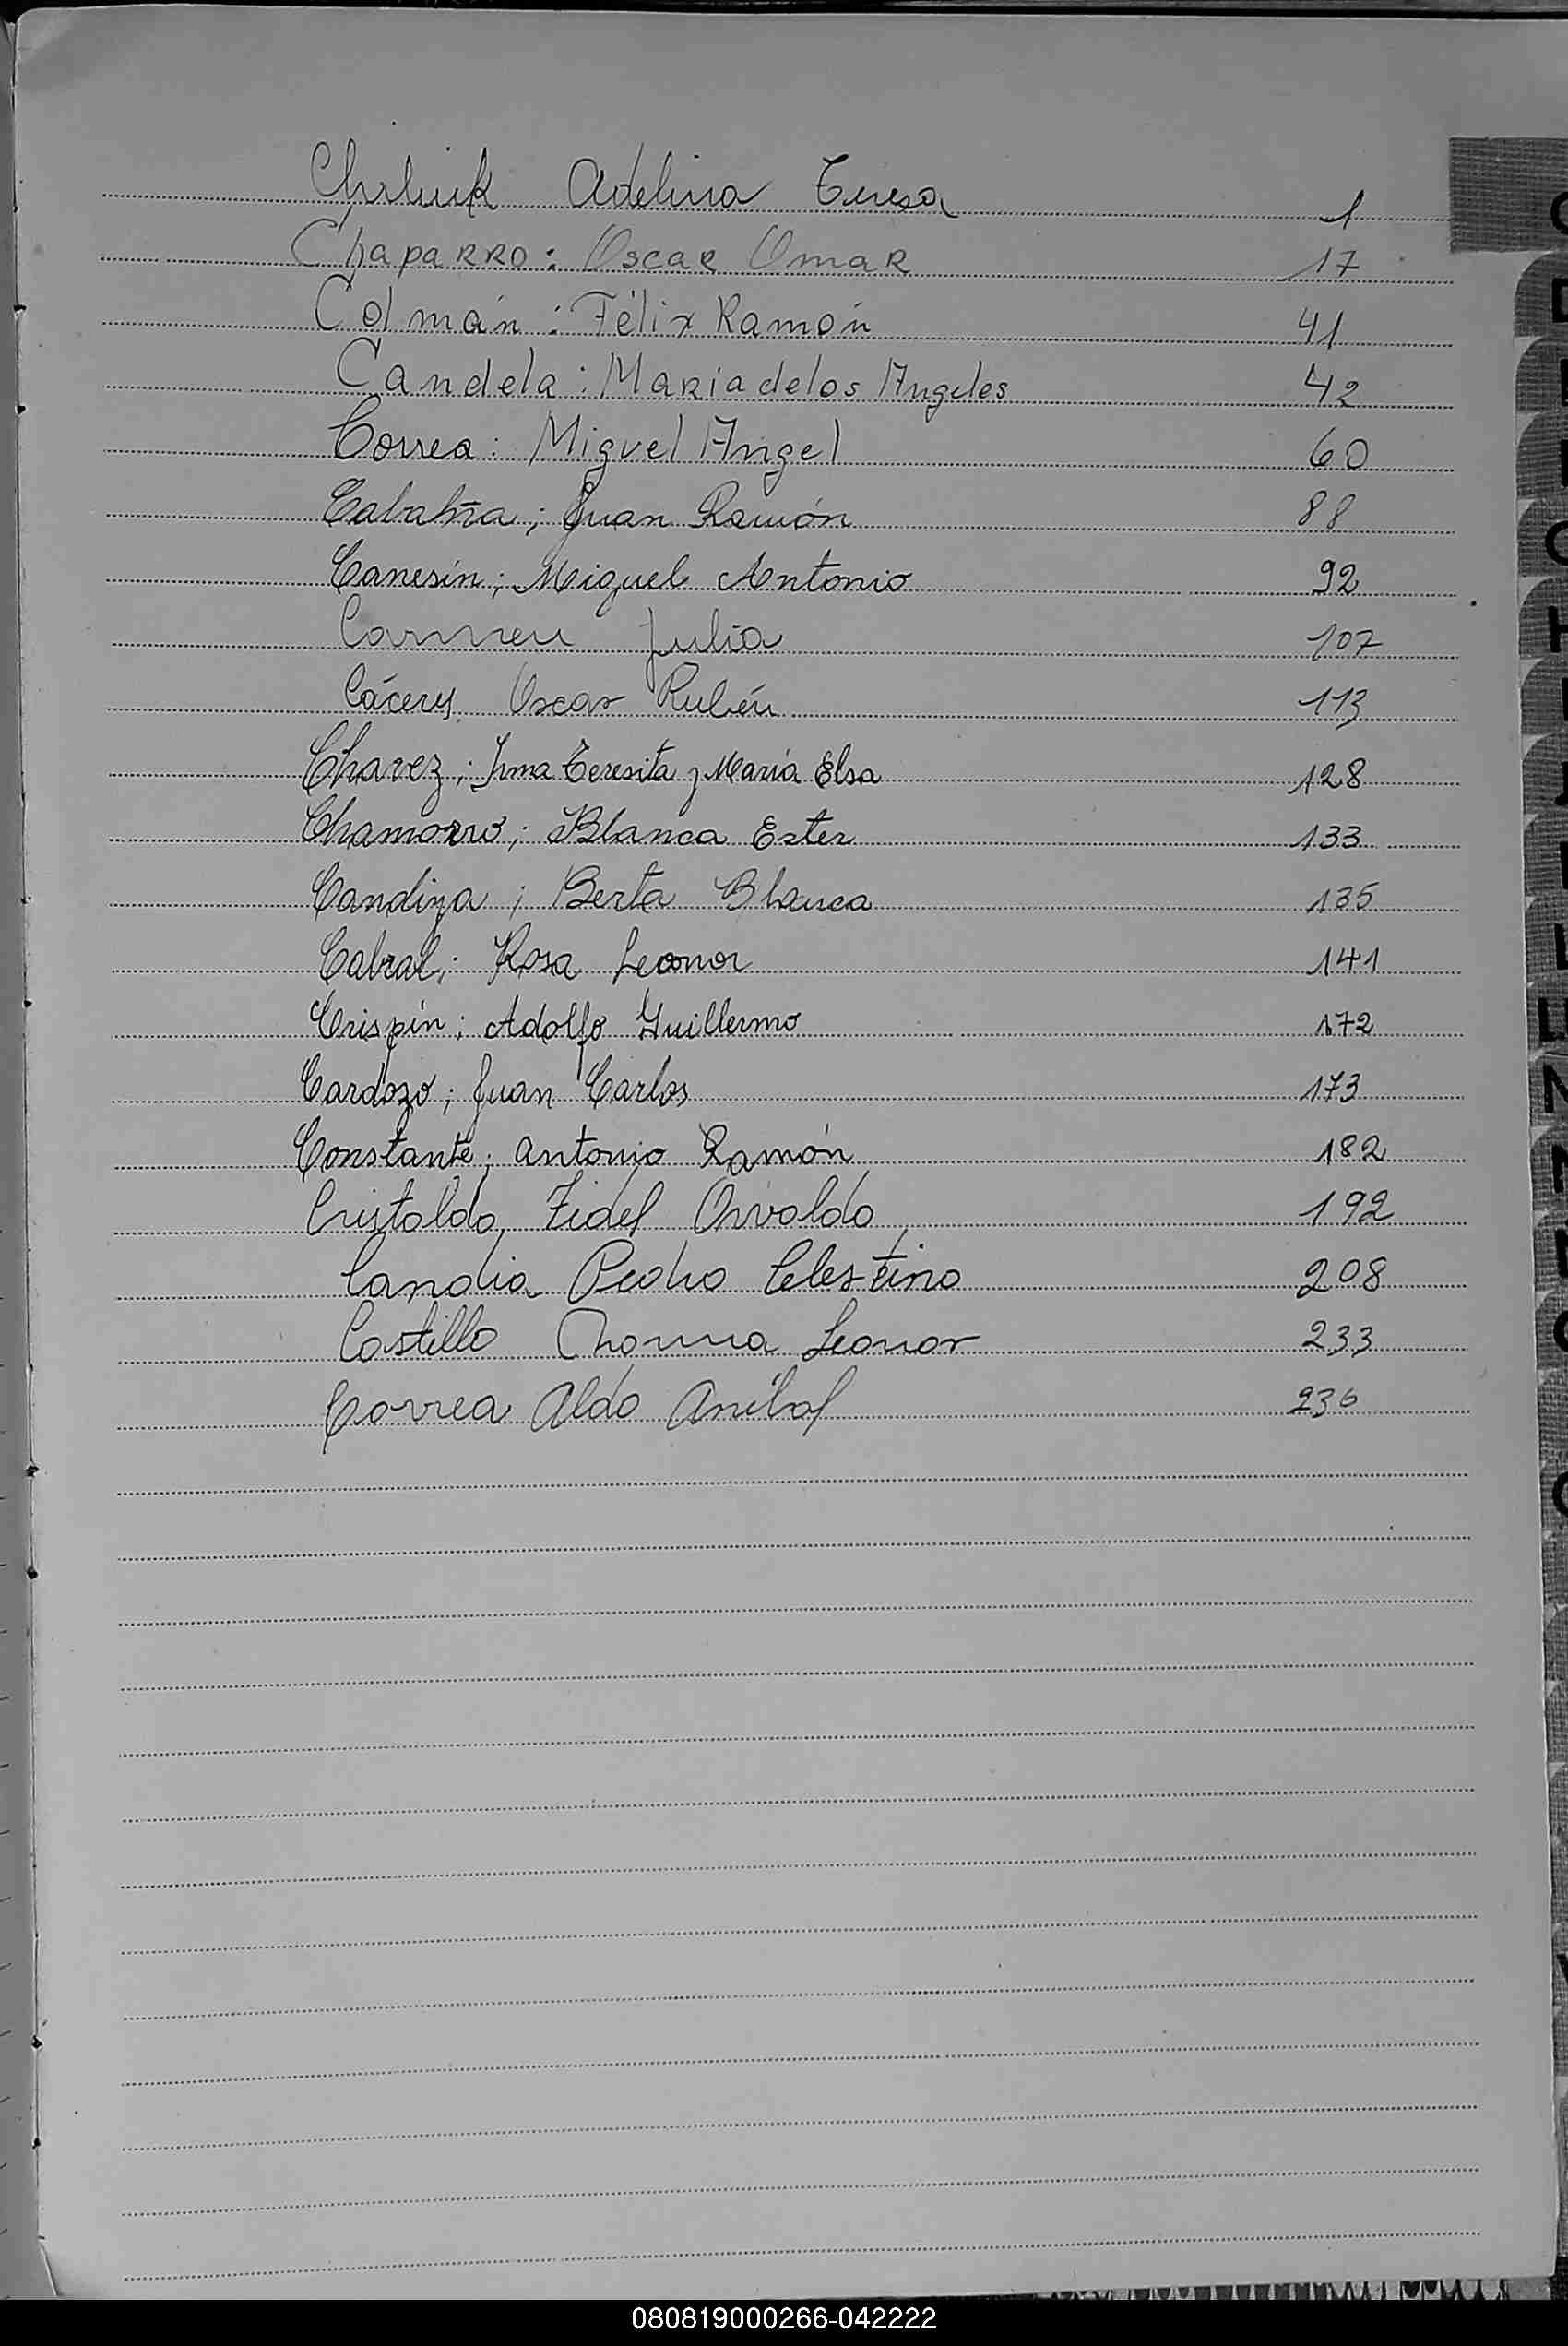 Adelina Teresa 1
Chaparro: Oscar Omar 17
Colmán: Félix Ramón 41
Candela: Maria de los Angeles 42
Correa: Miguel Angel 60
Juan Ramón 88
Canesín; Miguel Antonio 92
Carmen Julia 107
Cáceres Oscar Rubén 113
Chavez; Irma Teresita y María Elsa 128
Chamorro; Blanca Ester 133
Berta Blanca 135
Cabral; Rosa Leonor 141
Crispín; Adolfo Guillermo 172
Cardozo; Juan Carlos 173
Constante; Antonio Ramón 182
Cristaldo, Fidel Osvaldo 192
Candia Pedro Celestino 208
Castillo Leonor 233
Correa Aldo Anibal 236
080819000266-042222